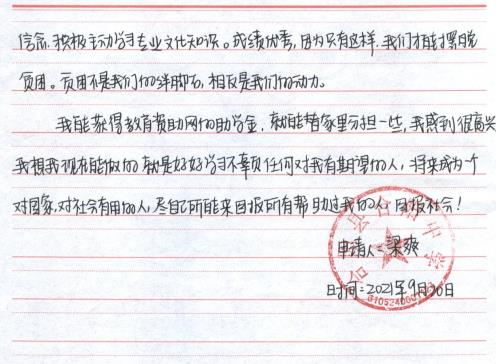 信念.积极主动学习专业文化知识。成绩优秀,因为只有这样.我们才能摆脱
贫困。贫困不是我们的绊脚石,相反是我们的动力。
我能获得教育资助网的助学金.就能替家里分担一些,我感到很高兴
我想我现在能做的就是好好学习不辜负任何对我有期望的人,将来成为一个
对国家.对社会有用的人,尽自己所能来回报所有帮助过我的人.回报社会!
申请人:梁爽
时间:2021年9月30日
县合阳中